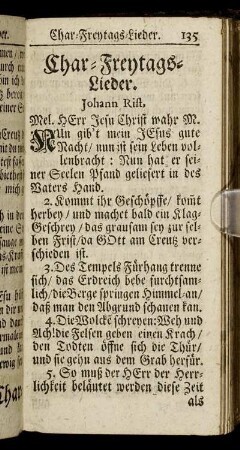 Char-Freytags-Lieder. 135
Char-Freytags-
Lieder.
Johann Rist.
Mel. HErr Jesu Christ wahr M.
NUn gib't mein JEsus gute
Nacht/ nun ist sein Leben vol-
lenbracht: Nun hat er sei-
ner Seelen Pfand geliefert in des
Vaters Hand.
2. Kommt ihr Geschöpffe/ kom̃t
herbey/ und machet bald ein Klag-
Geschrey/ das grausam sey zur sel-
ben Frist/ da GOtt am Creutz ver-
schieden ist.
3. Des Tempels Fürhang trenne
sich/ das Erdreich bebe furchtsam-
lich/ die Berge springen Himmel-an/
daß man den Abgrund schauen kan.
4. Die Wolcke schreyen: Weh und
Ach! die Felsen geben einen Krach/
den Todten öffne sich die Thür/
und sie gehn aus dem Grab herfür.
5. So muß der HErr der Herr-
lichkeit beläutet werden diese Zeit
als